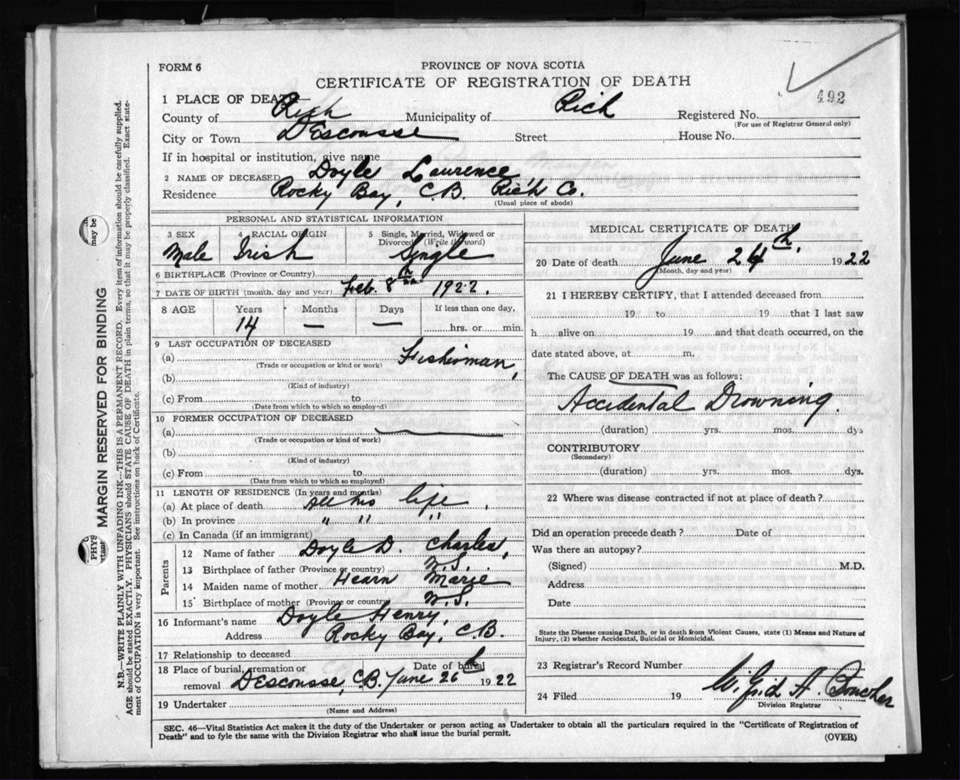 FORM 6
PROVINCE OF NOVA SCOTIA
CERTIFICATE OF REGISTRATION OF DEATH
492
1 PLACE OF DEATH
County of Rich Municipality of Rich Registered No.
(For use of Registrar General only)
City or Town D'Escousse Street House No.
If in hospital or institution, give name
2 NAME OF DECEASED Doyle Lawrence
Residence Rocky Bay, C.B. Rich Co.
(Usual place of abode)
PERSONAL AND STATISTICAL INFORMATION
3 SEX 4 RACIAL ORIGIN 5 Single, Married, Widowed or Divorced (Write the word)
Male Irish Single
6 BIRTHPLACE (Province or Country)
7 DATE OF BIRTH (month, day and year) Feb. 8th 1922.
8 AGE Years Months Days If less than one day,
14 — — hrs. or min.
9 LAST OCCUPATION OF DECEASED
(a) Fisherman,
(Trade or occupation or kind or work)
(b)
(Kind of industry)
(c) From to
(Date from which to which so employed)
10 FORMER OCCUPATION OF DECEASED
(a)
(Trade or occupation or kind of work)
(b)
(Kind of industry)
(c) From to
(Date from which to which so employed)
11 LENGTH OF RESIDENCE (In years and months)
(a) At place of death All his life
(b) In province " " "
(c) In Canada (if an immigrant)
Parents
12 Name of father Doyle D. Charles,
13 Birthplace of father (Province or country) N.S.
14 Maiden name of mother Hearn Marie
15 Birthplace of mother (Province or country) N.S.
16 Informant's name Doyle Henry,
Address Rocky Bay, C.B.
17 Relationship to deceased
18 Place of burial, cremation or removal D'Escousse, C.B. Date of burial June 26th 1922
19 Undertaker
(Name and Address)
MEDICAL CERTIFICATE OF DEATH
20 Date of death June 24th, 1922
(Month, day and year)
21 I HEREBY CERTIFY, that I attended deceased from
19 to 19 that I last saw
h alive on 19 and that death occurred, on the
date stated above, at m.
The CAUSE OF DEATH was as follows:
Accidental Drowning.
(duration) yrs. mos. dys
CONTRIBUTORY
(Secondary)
(duration) yrs. mos. dys.
22 Where was disease contracted if not at place of death?
Did an operation precede death? Date of
Was there an autopsy?
(Signed) M.D.
Address
Date
State the Disease causing Death, or in death from Violent Causes, state (1) Means and Nature of
Injury, (2) whether Accidental, Suicidal or Homicidal.
23 Registrar's Record Number
24 Filed 19 A. Boucher
Division Registrar
SEC. 46—Vital Statistics Act makes it the duty of the Undertaker or person acting as Undertaker to obtain all the particulars required in the "Certificate of Registration of
Death" and to fyle the same with the Division Registrar who shall issue the burial permit.
(OVER)
MARGIN RESERVED FOR BINDING
N.B.—WRITE PLAINLY WITH UNFADING INK—THIS IS A PERMANENT RECORD. Every item of information should be carefully supplied.
AGE should be stated EXACTLY. PHYSICIANS should STATE CAUSE OF DEATH in plain terms, so that it may be properly classified. Exact state-
ment of OCCUPATION is very important. See instructions on back of Certificate.
may be
PHYS
rtant